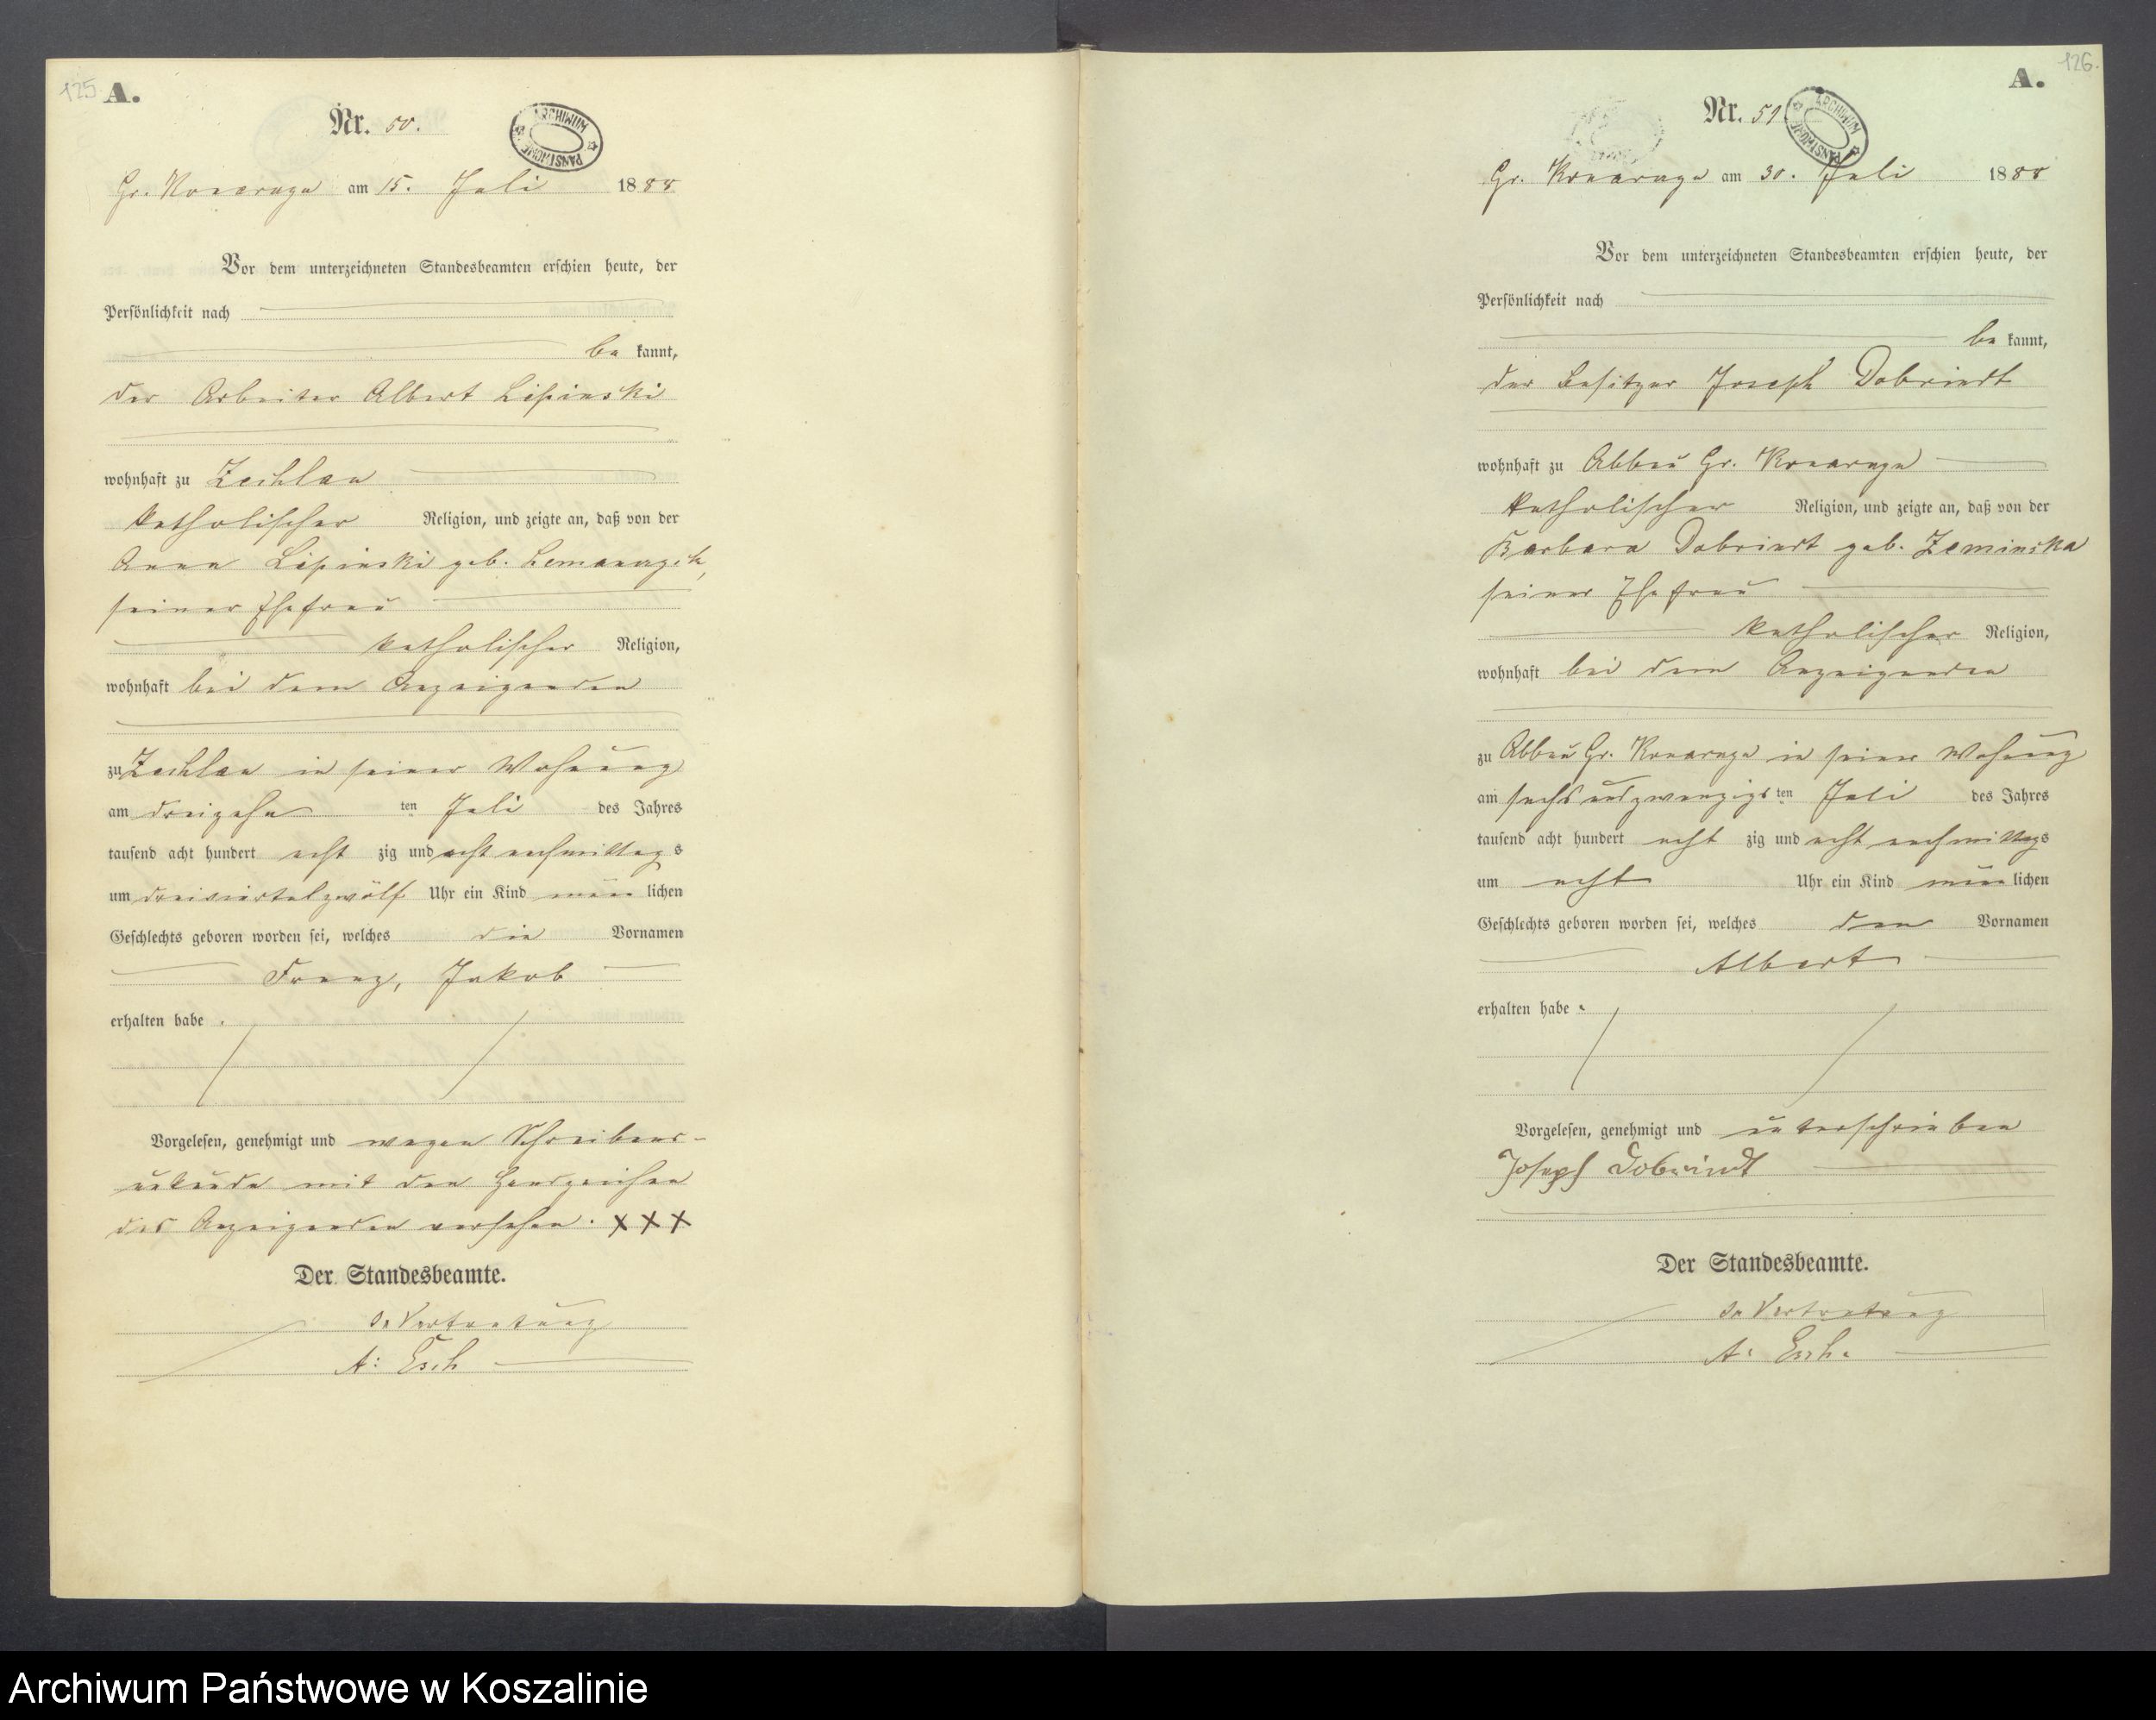 125
A.
Nr. 50.
ARCHIWUM PAŃSTWOWE
Gr. Konarzyn am 15. Juli 1888
Vor dem unterzeichneten Standesbeamten erschien heute, der
Persönlichkeit nach
be kannt,
der Arbeiter Albert Lipinski
wohnhaft zu Zechlau
katholischer Religion, und zeigte an, daß von der
Anna Lipinski geb. Lemanczyk,
seiner Ehefrau
katholischer Religion,
wohnhaft bei dem Anzeigenden
zu Zechlau in seiner Wohnung
am dreizehn ten Juli des Jahres
tausend acht hundert acht zig und acht nachmittags
um dreiviertelzwölf Uhr ein Kind männ lichen
Geschlechts geboren worden sei, welches die Vornamen
Franz, Jakob
erhalten habe.
Vorgelesen, genehmigt und wegen Schreibens-
unkunde mit den Handzeichen
des Anzeigenden versehen. XXX
Der Standesbeamte.
In Vertretung
A: Esch
126.
A.
Nr. 51
ARCHIWUM PAŃSTWOWE
Gr. Konarzyn am 30. Juli 1888
Vor dem unterzeichneten Standesbeamten erschien heute, der
Persönlichkeit nach
be kannt,
der Besitzer Joseph Dobrindt
wohnhaft zu Abbau Gr. Konarzyn
katholischer Religion, und zeigte an, daß von der
Barbara Dobrindt geb. Zeminska
seiner Ehefrau
katholischer Religion,
wohnhaft bei dem Anzeigenden
zu Abbau Gr. Konarzyn in seiner Wohnung
am sechsundzwanzigs ten Juli des Jahres
tausend acht hundert acht zig und acht nachmittags
um acht Uhr ein Kind männ lichen
Geschlechts geboren worden sei, welches den Vornamen
Albert
erhalten habe.
Vorgelesen, genehmigt und unterschrieben
Joseph Dobrindt
Der Standesbeamte.
In Vertretung
A: Esch.
Archiwum Państwowe w Koszalinie